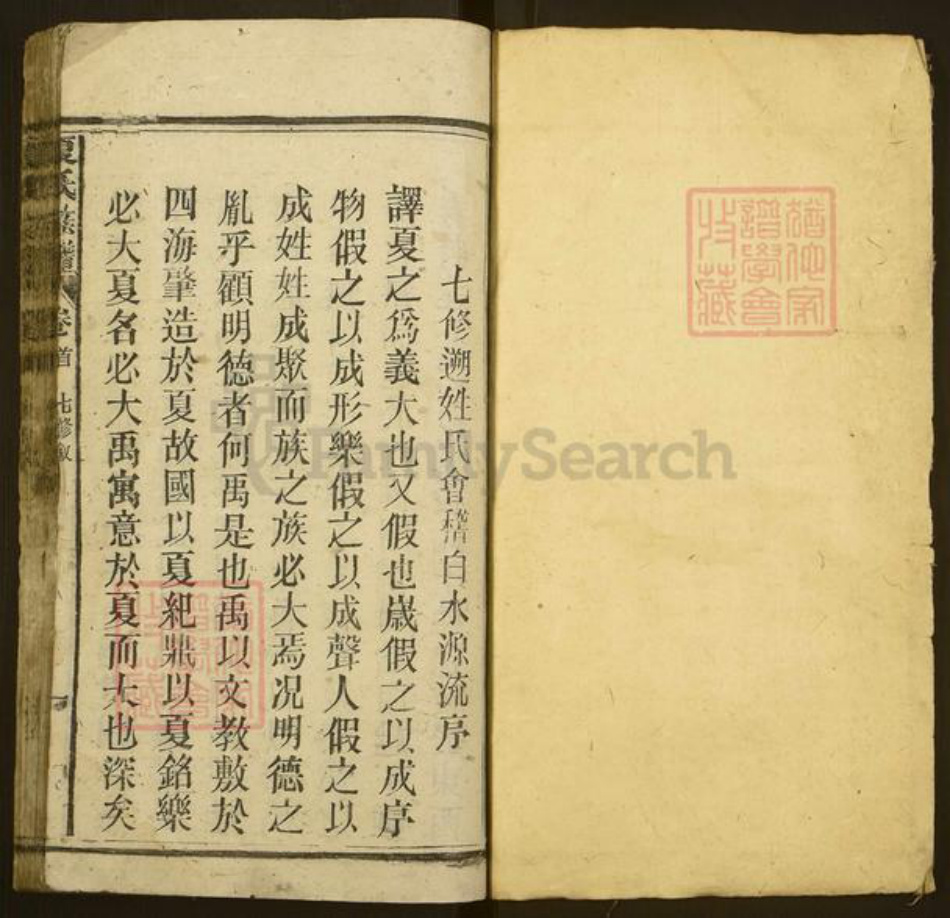 七修遡姓氏會稽白水源流序
譯夏之爲義大也又假也歲假之以成序
物假之以成形樂假之以成聲人假之以
成姓姓成聚而族之族必大焉况明德之
胤乎顧明德者何禹是也禹以文教敷於
四海肇造於夏故國以夏紀鼎以夏銘樂
必大夏名必大禹寓意於夏而大也深矣
夏氏族譜 卷首 七修敘
譜學會
收藏
FamilySearch